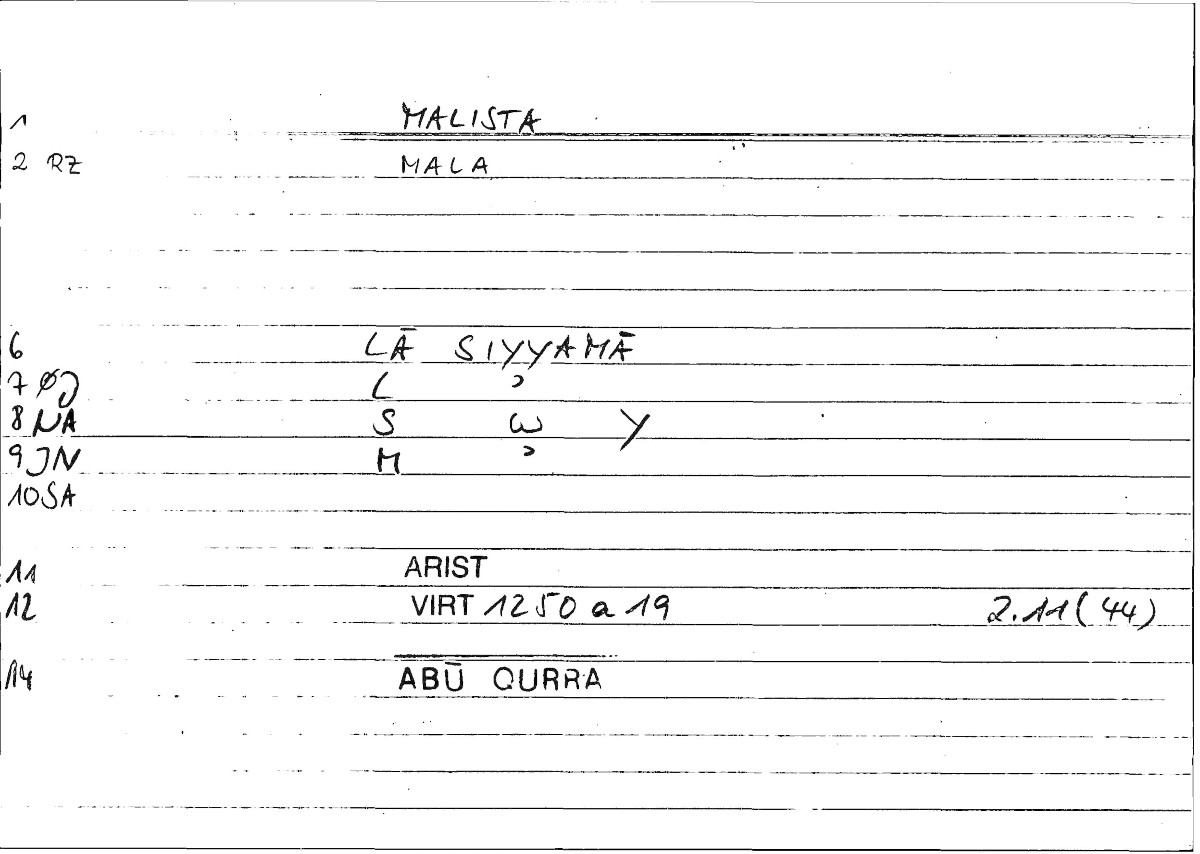 1 MALISTA
2 RZ MALA
6 LĀ SIYYAMĀ
7 ØJ L ʾ
8 NA S W Y
9 JN M ʾ
10 SA
11 ARIST
12 VIRT 1250 a 19 2.11(44)
14 ABŪ QURRA